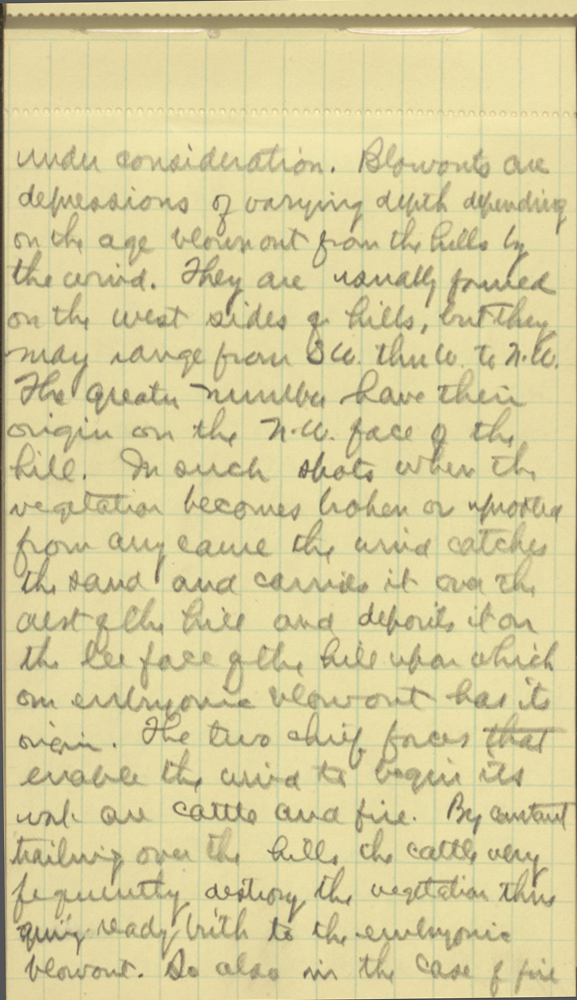 under consideration. Blowouts are
depressions of varying depth depending
on the age blown out from the hills by
the wind. They are usually formed
on the west sides of hills, but they
may range from S.W. thru W. to N.W.
The greater number have their
origin on the N.W. face of the
hill. In such spots when the
vegetation becomes broken or uprooted
from any cause the wind catches
the sand and carries it over the
crest of the hill and deposits it on
the lee face of the hill upon which
an embryonic blowout has its
origin. The two chief forces that
enable the wind to begin its
work are cattle and fire. By constant
trailing over the hills the cattle very
frequently destroy the vegetation thus
giving ready birth to the embryonic
blowout. So also in the case of fire